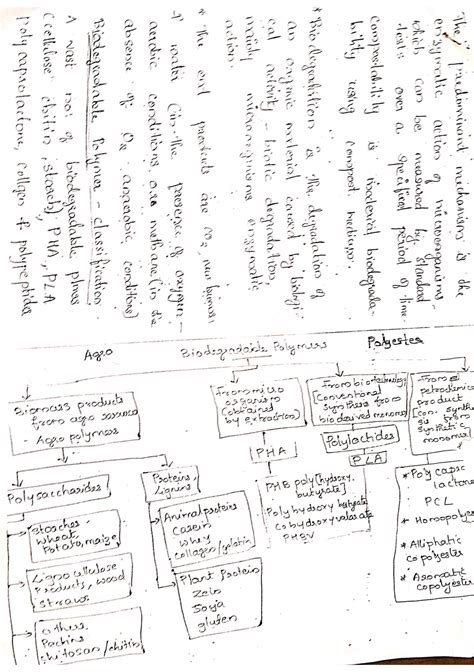 The predominant mechanisms is the
enzymatic action of microorganisms
which can be measured by standard
tests over a specified period of time.
Compostability is incidental biodegrada-
bility using compost medium.
* Biodegradation is the degradation of
an organic material caused by biologi-
cal activity - biotic degradation,
mainly microorganisms enzymatic
action.
* The end products are CO2, new biomass
& water (in the presence of oxygen -
aerobic conditions) are methane (in the
absence of O2 anaerobic conditions)
Biodegradable Polymer - classification
A vast no: of biodegradable plmrs
(cellulose, chitin, starch), PHA, PLA
polycaprolactone, collgen & polypeptides
Biodegradable Polymers
Agro
Polyester
Biomass products
from agro resources
- Agro polymers
From micro
organism
(obtained
by extraction)
From biotechnology
[Conventional
synthesis from
bio derived monomers]
From
petrochemical
product
[con. synthesis
is from
synthetic
monomers]
PHA
Polylactides
PLA
Polysaccharides
Proteins,
Lignins
PHB poly[hydroxy
butyrate]
Poly hydroxy butyrate
Co hydroxy valerate
PHBV
* Polycapro
lactone
PCL
* Homopolyes
* Alliphatic
copolyester
* Aromatic
copolyester
Starches -
Wheat,
Potato, maize
Animal proteins
Casein
Whey
collagen/gelatin
Ligno cellulose
Products, wood
Straws
Plant Protein
Zein
Soya
gluten
others
Pectins
chitosan/chitin